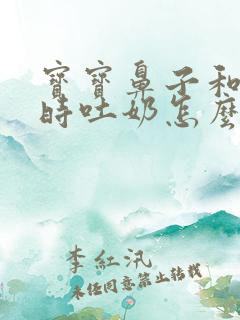 寶寶鼻子和
時吐奶怎麼
李紅汛
未經同意禁止轉載